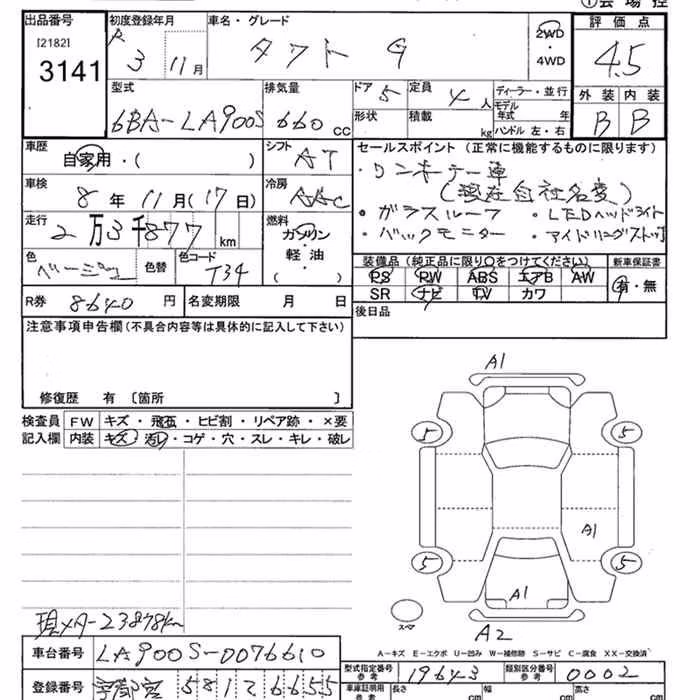 ①会場控
出品番号
[2182]
3141
初度登録年月
R 3 11月
車名・グレード
タフト G
2WD
・
4WD
評価点
4.5
外装 内装
B B
型式
6BA-LA900S
排気量
660 CC
ドア 5
形状
定員 4 人
積載 kg
ディーラー・並行
モデル年式 年
ハンドル 左・右
車歴
自家用・( )
シフト
AT
車検
8年 11月(17日)
冷房
AAC
走行
2万3千877 km
燃料
ガソリン
・
軽油
・
( )
色
ベージュ
色替
色コード
T34
R券 8640 円
名変期限 月 日
セールスポイント (正常に機能するものに限ります)
・ワンオーナー車
(現在自社名変)
・ガラスルーフ ・LEDヘッドライト
・バックモニター ・アイドリングストップ
装備品 (純正品に限り○をつけてください)
新車保証書
PS PW ABS エアB AW
SR ナビ TV カワ
有・無
後日品
注意事項申告欄(不具合内容等は具体的に記入して下さい)
修復歴 有 [箇所 ]
検査員
記入欄
FW キズ・飛石・ヒビ割・リペア跡・×要
内装 キズ・汚レ・コゲ・穴・スレ・キレ・破レ
A1
5 5
A1
5 5
A1
スペア
A2
現メーター23878km
A-キズ E-エクボ U-凹み W-補修跡 S-サビ C-腐食 XX-交換済
車台番号 LA900S-0076610
型式指定番号
参考
19643
類別区分番号
参考
0002
登録番号 宇都宮 581 2 6655
車庫証明用
参考
長さ cm 幅 cm 高さ cm